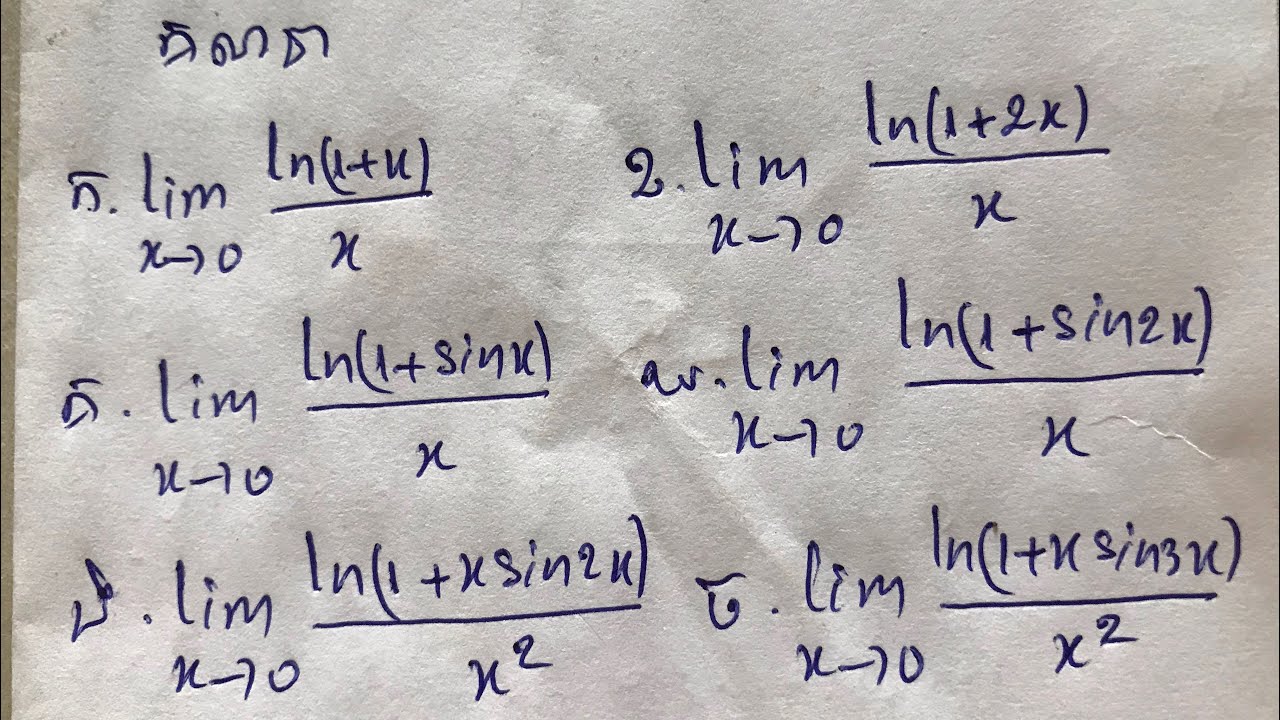 គណនា
ក. lim x→0 ln(1+x)/x ខ. lim x→0 ln(1+2x)/x
គ. lim x→0 ln(1+sinx)/x ឃ. lim x→0 ln(1+sin2x)/x
ង. lim x→0 ln(1+xsin2x)/x² ច. lim x→0 ln(1+xsin3x)/x²